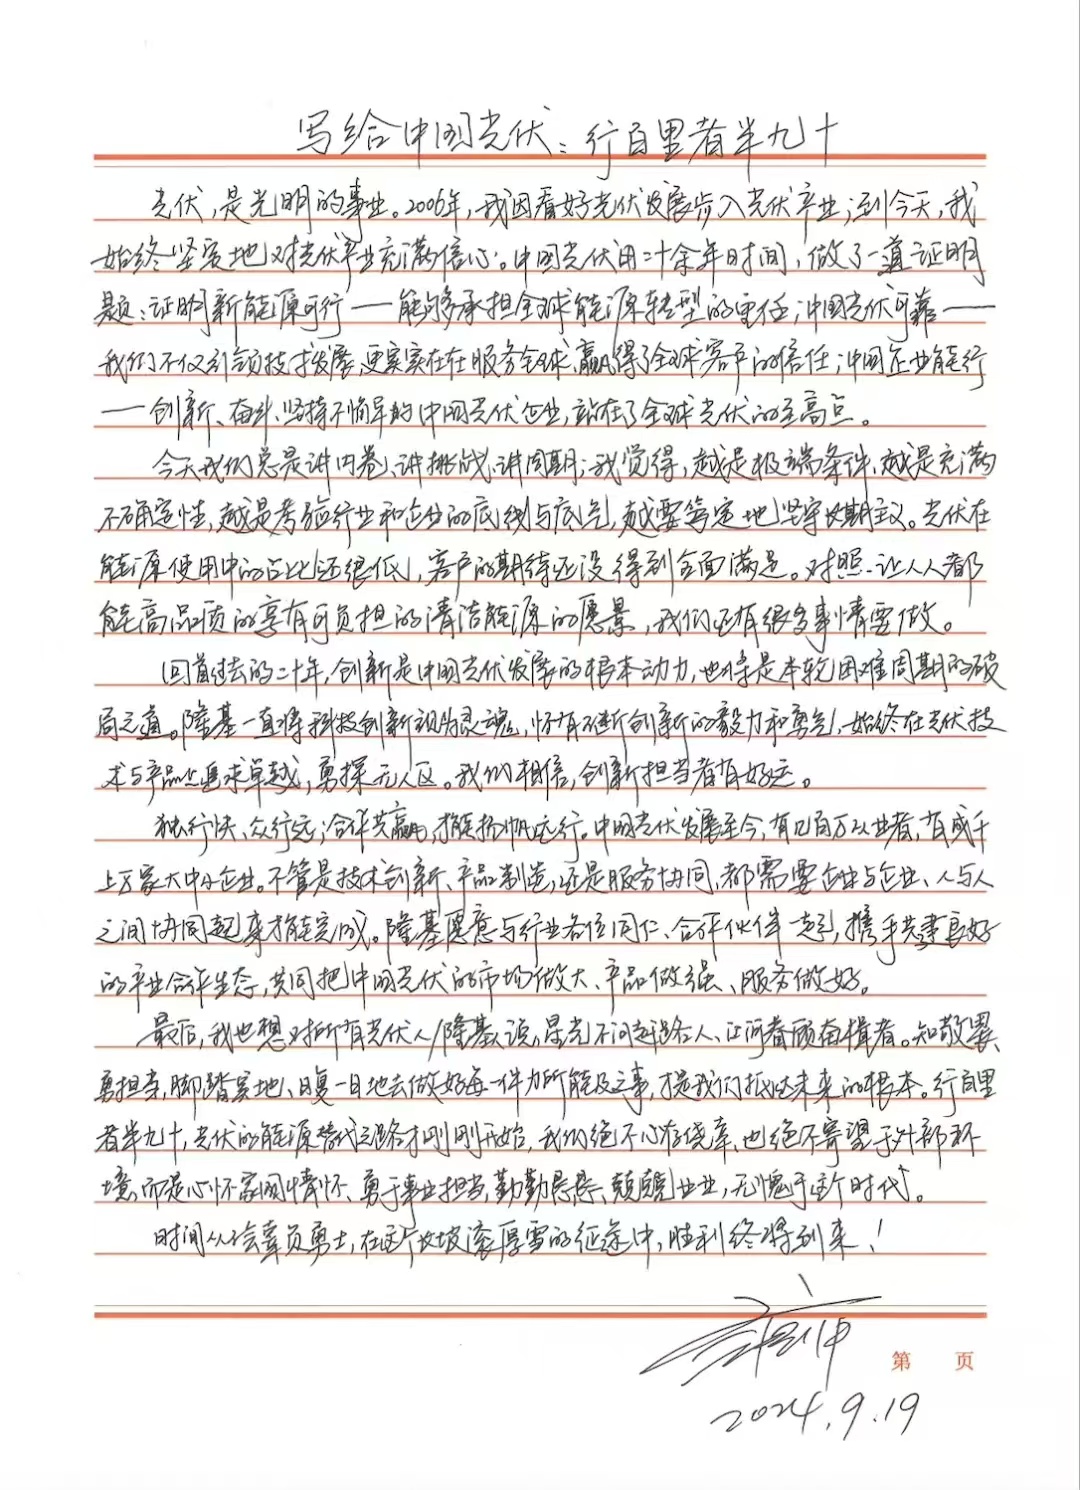 写给中国光伏：行百里者半九十
光伏，是光明的事业。2006年，我因看好光伏发展步入光伏产业；到今天，我
始终坚实地对光伏产业充满信心。中国光伏用二十余年时间，做了一道证明
题：证明新能源可行——能够承担全球能源转型的重任；中国光伏可靠——
我们不仅引领技术发展，更实实在在服务全球，赢得了全球客户的信任；中国企业能行
——创新、奋斗、坚持不懈的中国光伏企业，站在了全球光伏的至高点。
今天我们总是讲内卷、讲挑战、讲周期；我觉得，越是极端条件，越是充满
不确定性，越是考验行业和企业的底线与底气，越要笃定地坚守长期主义。光伏在
能源使用中的占比还很低，客户的期待还没得到全面满足。对照让人人都
能高品质的享有可负担的清洁能源的愿景，我们还有很多事情要做。
回首过去的二十年，创新是中国光伏发展的根本动力，也将是本轮困难周期的破
局之道。隆基一直将科技创新视为灵魂，怀有不断创新的毅力和勇气，始终在光伏技
术与产品上追求卓越，勇探无人区。我们相信，创新担当者有好运。
独行快、众行远；合作共赢，才能扬帆远行。中国光伏发展至今，有几百万从业者，有成千
上万家大中小企业。不管是技术创新、产品制造，还是服务协同，都需要企业与企业、人与人
之间协同起来才能完成。隆基愿意与行业各位同仁、合作伙伴一起，携手共建良好
的产业合作生态，共同把中国光伏的市场做大、产品做强、服务做好。
最后，我也想对所有光伏人/隆基人说，星光不问赶路人、江河眷顾奋楫者。知敬畏、
勇担当，脚踏实地、日复一日地去做好每一件力所能及之事，才是我们抵达未来的根本。行百里
者半九十，光伏的能源替代之路才刚刚开始，我们绝不心存侥幸、也绝不寄望于外部环
境，而是心怀家国情怀、勇于事业担当，勤勤恳恳、兢兢业业，无愧于这个时代。
时间从不会辜负勇士，在这个长坡滚厚雪的征途中，胜利终将到来！
第 页
2024.9.19